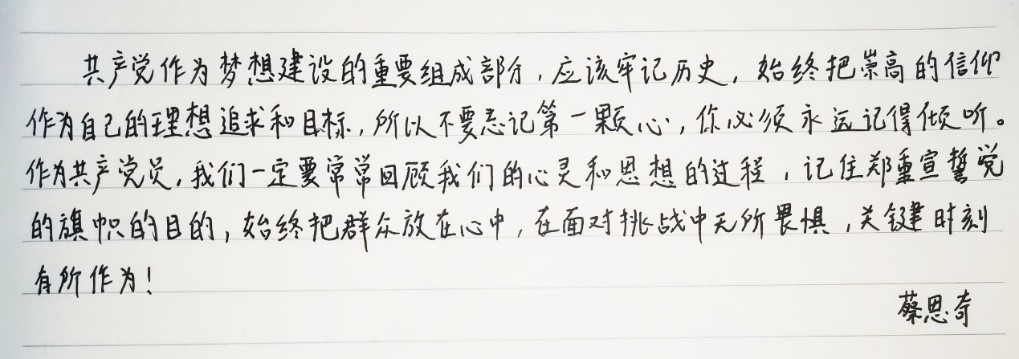 共产党作为梦想建设的重要组成部分，应该牢记历史，始终把崇高的信仰
作为自己的理想追求和目标，所以不要忘记第一颗心，你必须永远记得倾听。
作为共产党员，我们一定要常常回顾我们的心灵和思想的过程，记住郑重宣誓党
的旗帜的目的，始终把群众放在心中，在面对挑战中无所畏惧，关键时刻
有所作为！
蔡恩奇